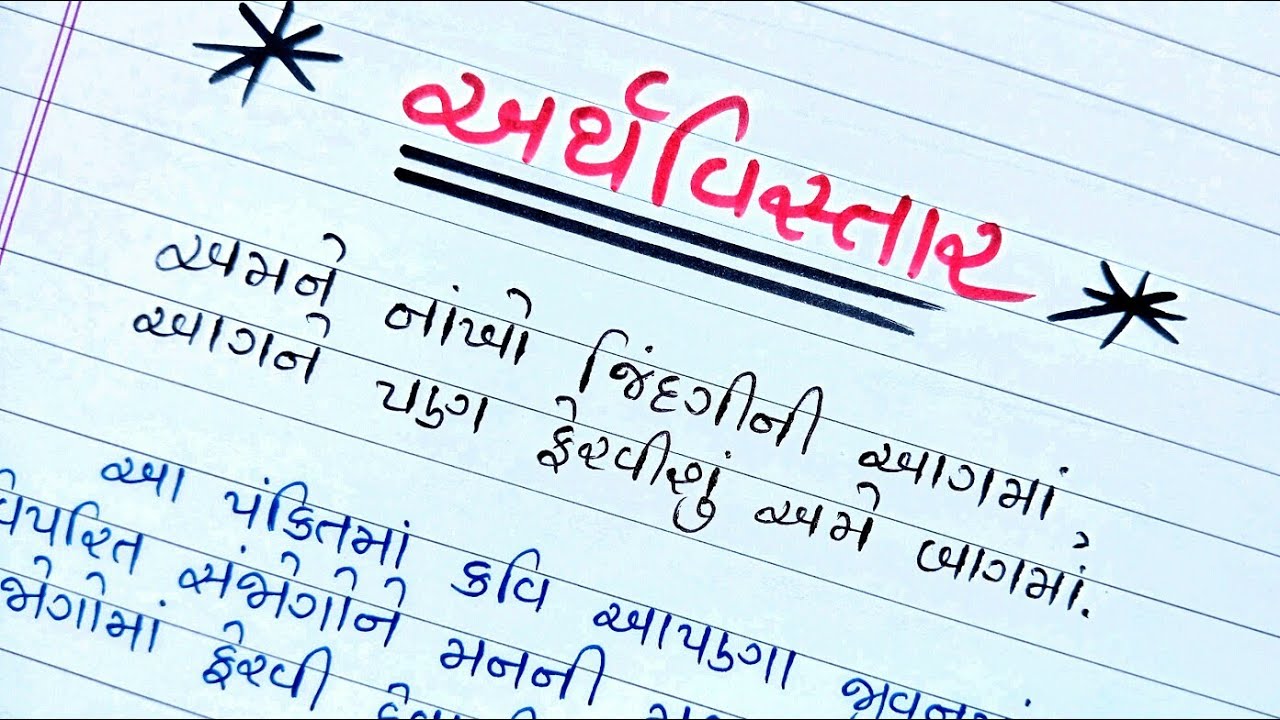 અર્થવિસ્તાર
અમને નાંખો જિંદગીની આગમાં,
આગને પણ ફેરવીશું અમે બાગમાં.
આ પંક્તિમાં કવિ આપણા
વિપરિત સંજોગોને મનની
ફેરવી